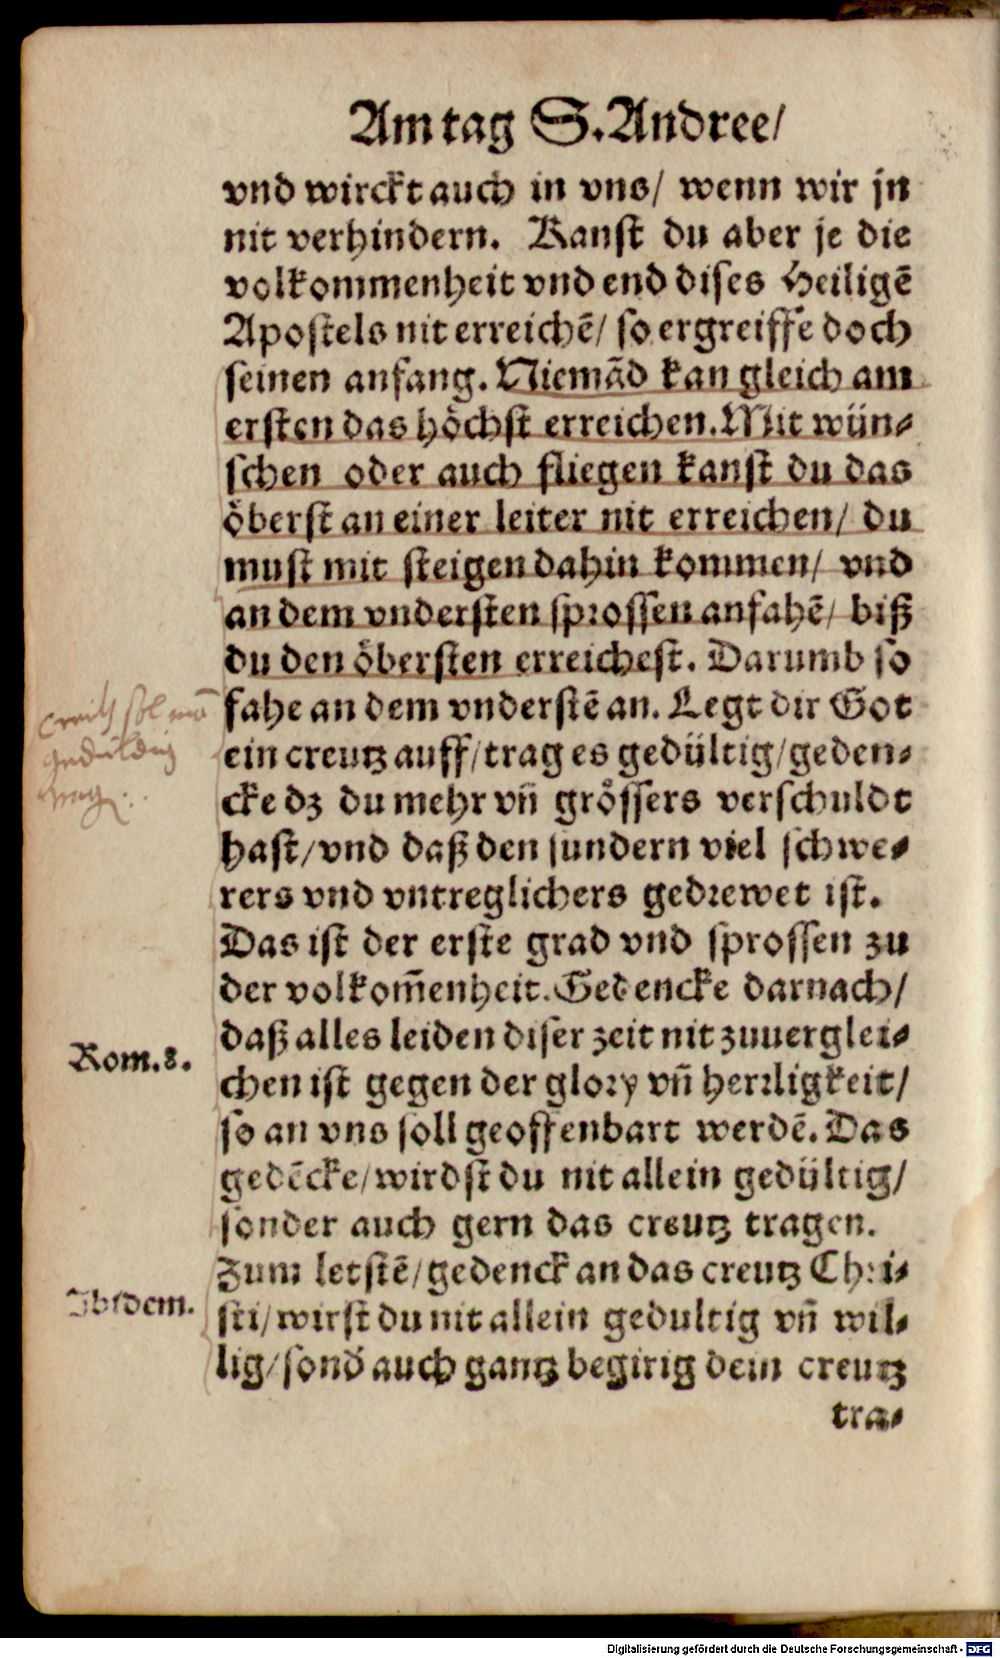 Am tag S. Andree/
vnd wirckt auch in vns/ wenn wir jn
nit verhindern. Kanst du aber je die
volkommenheit vnd end dises Heiligē
Apostels nit erreichē/ so ergreiffe doch
seinen anfang. Niemād kan gleich am
ersten das höchst erreichen. Mit wün⸗
schen oder auch fliegen kanst du das
öberst an einer leiter nit erreichen/ du
must mit steigen dahin kommen/ vnd
an dem vndersten sprossen anfahē/ biß
du den öbersten erreichest. Darumb so
fahe an dem vnderstē an. Legt dir Got
ein creutz auff/ trag es gedültig/ geden⸗
cke dz du mehr vñ grössers verschuldt
hast/ vnd daß den sundern viel schwe⸗
rers vnd vntreglichers gedrewet ist.
Das ist der erste grad vnd sprossen zu
der volkom̄enheit. Gedencke darnach/
daß alles leiden diser zeit nit zuuerglei⸗
chen ist gegen der glory vñ herrligkeit/
so an vns soll geoffenbart werdē. Das
gedēcke/ wirdst du nit allein gedültig/
sonder auch gern das creutz tragen.
Zum letstē/ gedenck an das creutz Chri⸗
sti/ wirst du nit allein gedultig vñ wil⸗
lig/ sond̄ auch gantz begirig dem creutz
tra⸗
sol
geduldig
Rom. 8.
Ibidem.
Digitalisierung gefördert durch die Deutsche Forschungsgemeinschaft - DFG